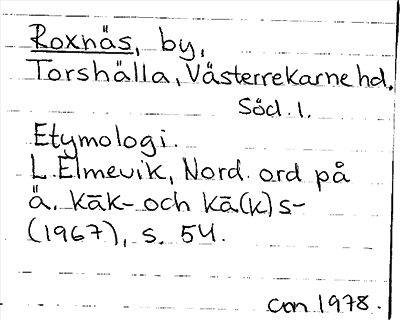 Roxnäs, by,
Torshälla, Västerrekarne hd.
Söd. l.
Etymologi.
L. Elmevik, Nord. ord på
ä. kāk- och kā(k)s-
(1967), s. 54.
can 1978.